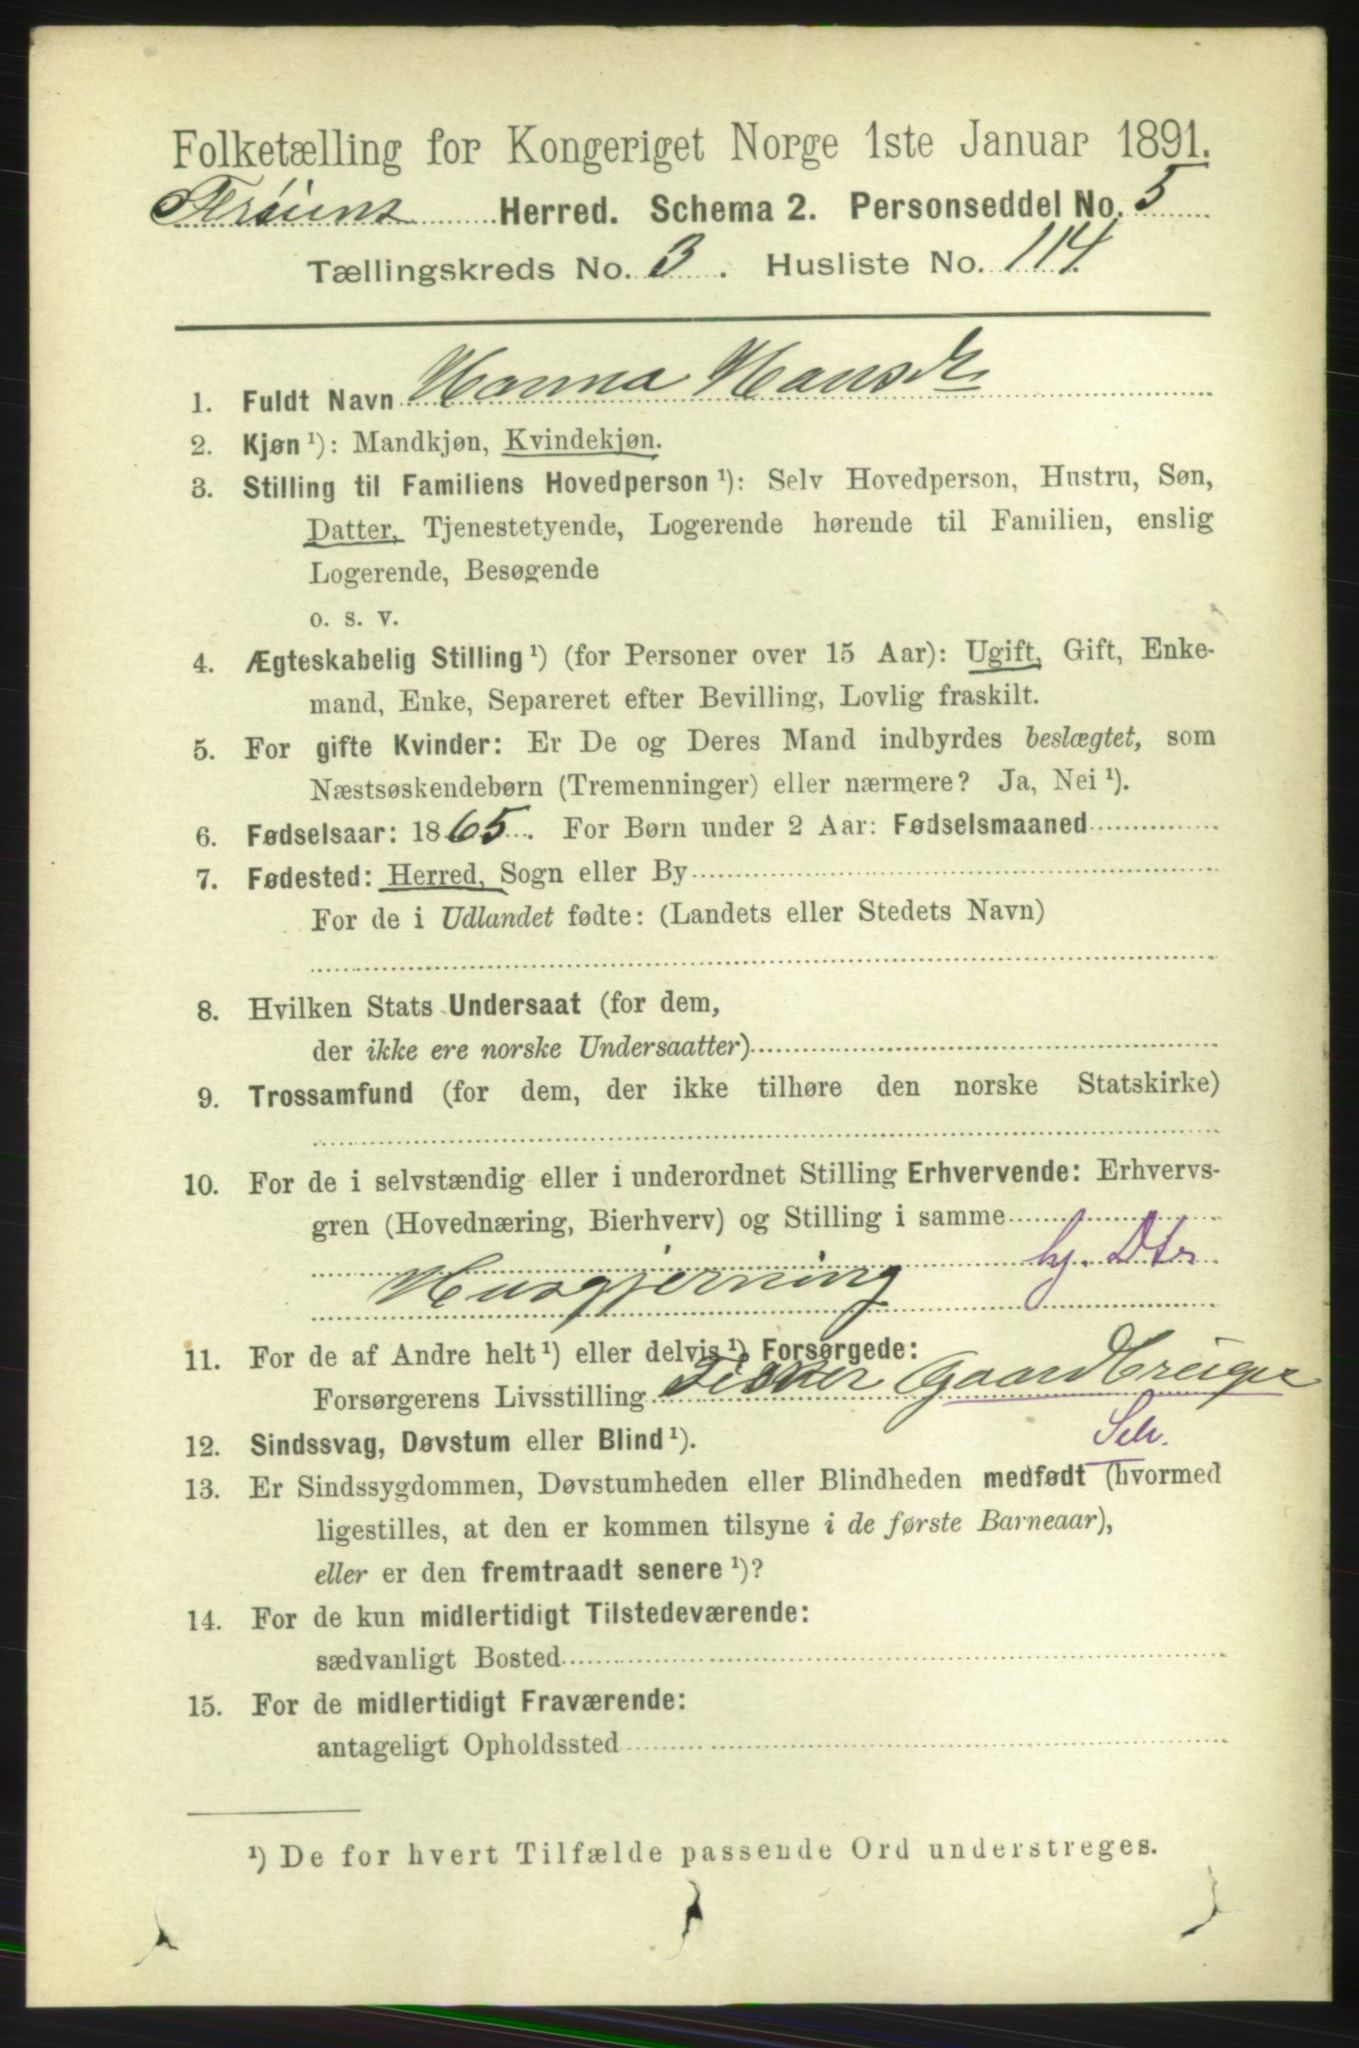 Folketælling for Kongeriget Norge 1ste Januar 1891.
Herred. Schema 2. Personseddel No. 5
Tællingskreds No. 3. Husliste No. 114.
1. Fuldt Navn Hanna Hansdr
2. Kjøn ¹): Mandkjøn, Kvindekjøn.
3. Stilling til Familiens Hovedperson ¹): Selv Hovedperson, Hustru, Søn,
Datter, Tjenestetyende, Logerende hørende til Familien, enslig
Logerende, Besøgende
o. s. v.
4. Ægteskabelig Stilling ¹) (for Personer over 15 Aar): Ugift, Gift, Enke-
mand, Enke, Separeret efter Bevilling, Lovlig fraskilt.
5. For gifte Kvinder: Er De og Deres Mand indbyrdes beslægtet, som
Næstsøskendebørn (Tremenninger) eller nærmere? Ja, Nei ¹).
6. Fødselsaar: 1865. For Børn under 2 Aar: Fødselsmaaned
7. Fødested: Herred, Sogn eller By
For de i Udlandet fødte: (Landets eller Stedets Navn)
8. Hvilken Stats Undersaat (for dem,
der ikke ere norske Undersaatter)
9. Trossamfund (for dem, der ikke tilhøre den norske Statskirke)
10. For de i selvstændig eller i underordnet Stilling Erhvervende: Erhvervs-
gren (Hovednæring, Bierhverv) og Stilling i samme
Husgjerning hj. Dtr
11. For de af Andre helt ¹) eller delvis ¹) Forsørgede:
Forsørgerens Livsstilling Fisker Gaardbruger
Selv.
12. Sindssvag, Døvstum eller Blind ¹).
13. Er Sindssygdommen, Døvstumheden eller Blindheden medfødt (hvormed
ligestilles, at den er kommen tilsyne i de første Barneaar),
eller er den fremtraadt senere ¹)?
14. For de kun midlertidigt Tilstedeværende:
sædvanligt Bosted
15. For de midlertidigt Fraværende:
antageligt Opholdssted
¹) De for hvert Tilfælde passende Ord understreges.